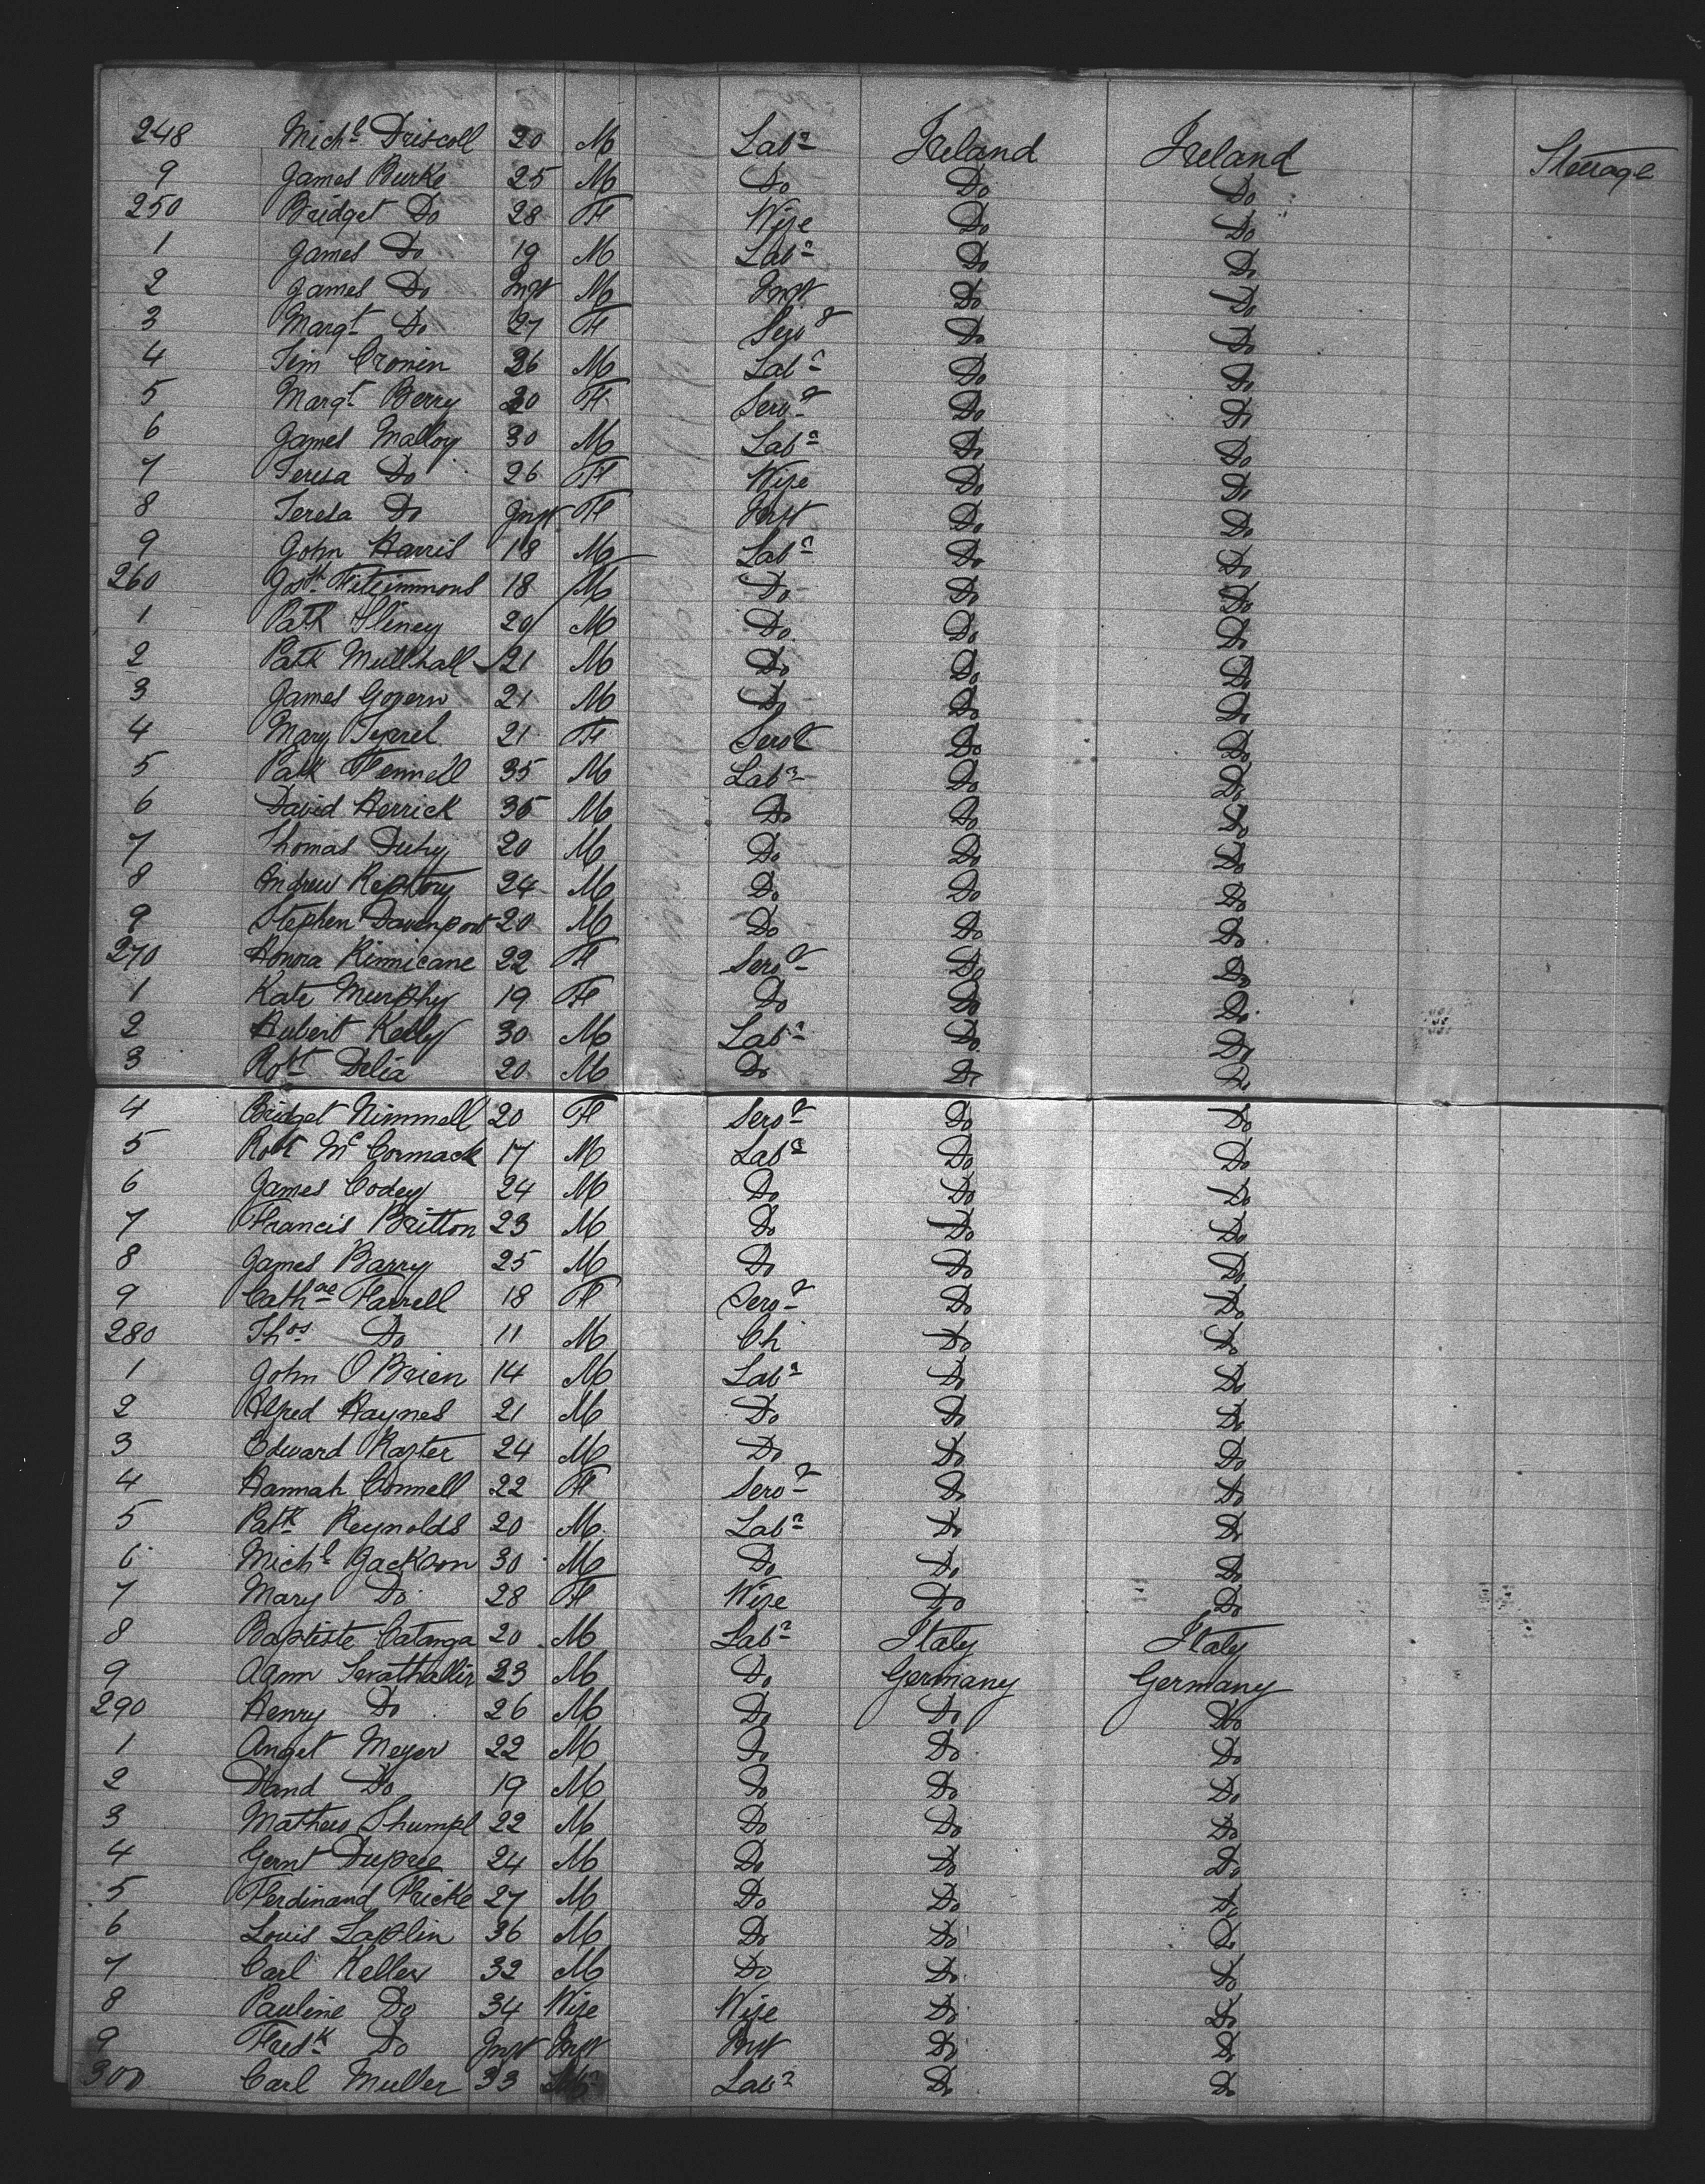 248 Michl Driscoll 20 M Labr Ireland Ireland Steerage
9 James Burke 25 M Do Do Do
250 Bridget Do 28 F Wife Do Do
1 James Do 19 M Labr Do Do
2 James Do Inft M Inft Do Do
3 Margt Do 27 F Servt Do Do
4 Tim Cronin 26 M Labr Do Do
5 Margt Berry 20 F Servt Do Do
6 James Malloy 30 M Labr Do Do
7 Teresa Do 26 F Wife Do Do
8 Teresa Do Inft F Inft Do Do
9 John Harris 18 M Labr Do Do
260 Josh Fitzimmons 18 M Do Do Do
1 Patk Sliney 20 M Do Do Do
2 Patk Mullhall 21 M Do Do Do
3 James Govern 21 M Do Do Do
4 Mary Tyrrel 21 F Servt Do Do
5 Patk Fennell 35 M Labr Do Do
6 David Herrick 35 M Do Do Do
7 Thomas Duhy 20 M Do Do Do
8 Andrew 24 M Do Do Do
9 Stephen Davenport 20 M Do Do Do
270 Honora Kinnicane 22 F Servt Do Do
1 Kate Murphy 19 F Do Do Do
2 Hubert Kelly 30 M Labr Do Do
3 Robt Delia 20 M Do Do Do
4 Bridget Nimmell 20 F Servt Do Do
5 Robt McCormack 17 M Labr Do Do
6 James Codey 24 M Do Do Do
7 Francis Britton 23 M Do Do Do
8 James Barry 25 M Do Do Do
9 Cathne Farrell 18 F Servt Do Do
280 Thos Do 11 M Ch Do Do
1 John O'Brien 14 M Labr Do Do
2 Alfred Haynes 21 M Do Do Do
3 Edward 24 M Do Do Do
4 Hannah Connell 22 F Servt Do Do
5 Patk Reynolds 20 M Labr Do Do
6 Michl Jackson 30 M Do Do Do
7 Mary Do 28 F Wife Do Do
8 Baptiste Catanga 20 M Labr Italy Italy
9 23 M Do Germany Germany
290 Henry Do 26 M Do Do Do
1 Meyer 22 M Do Do Do
2 Do 19 M Do Do Do
3 Mathew Shumpl 22 M Do Do Do
4 Gernt Dupree 24 M Do Do Do
5 Ferdinand Fricke 27 M Do Do Do
6 Louis Laplin 36 M Do Do Do
7 Carl Keller 32 M Do Do Do
8 Pauline Do 34 Wife Wife Do Do
9 Fredk Do Inft Inft Inft Do Do
300 Carl Muller 33 Labr Do Do